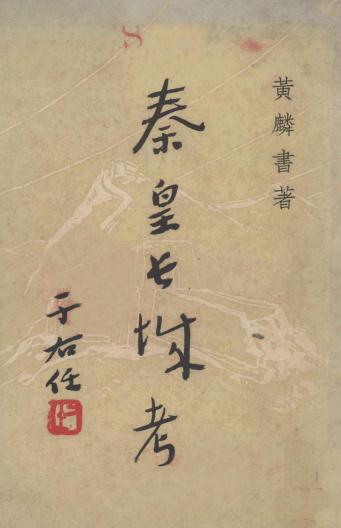 黃麟書著
秦皇長城考
于右任